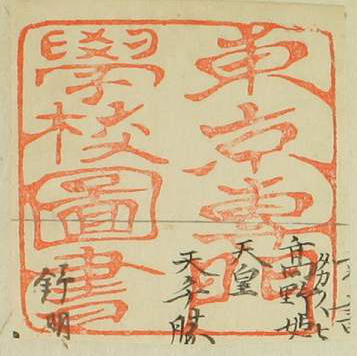 東京專門
學校圖書
高野姫
天皇
天平勝
舒明